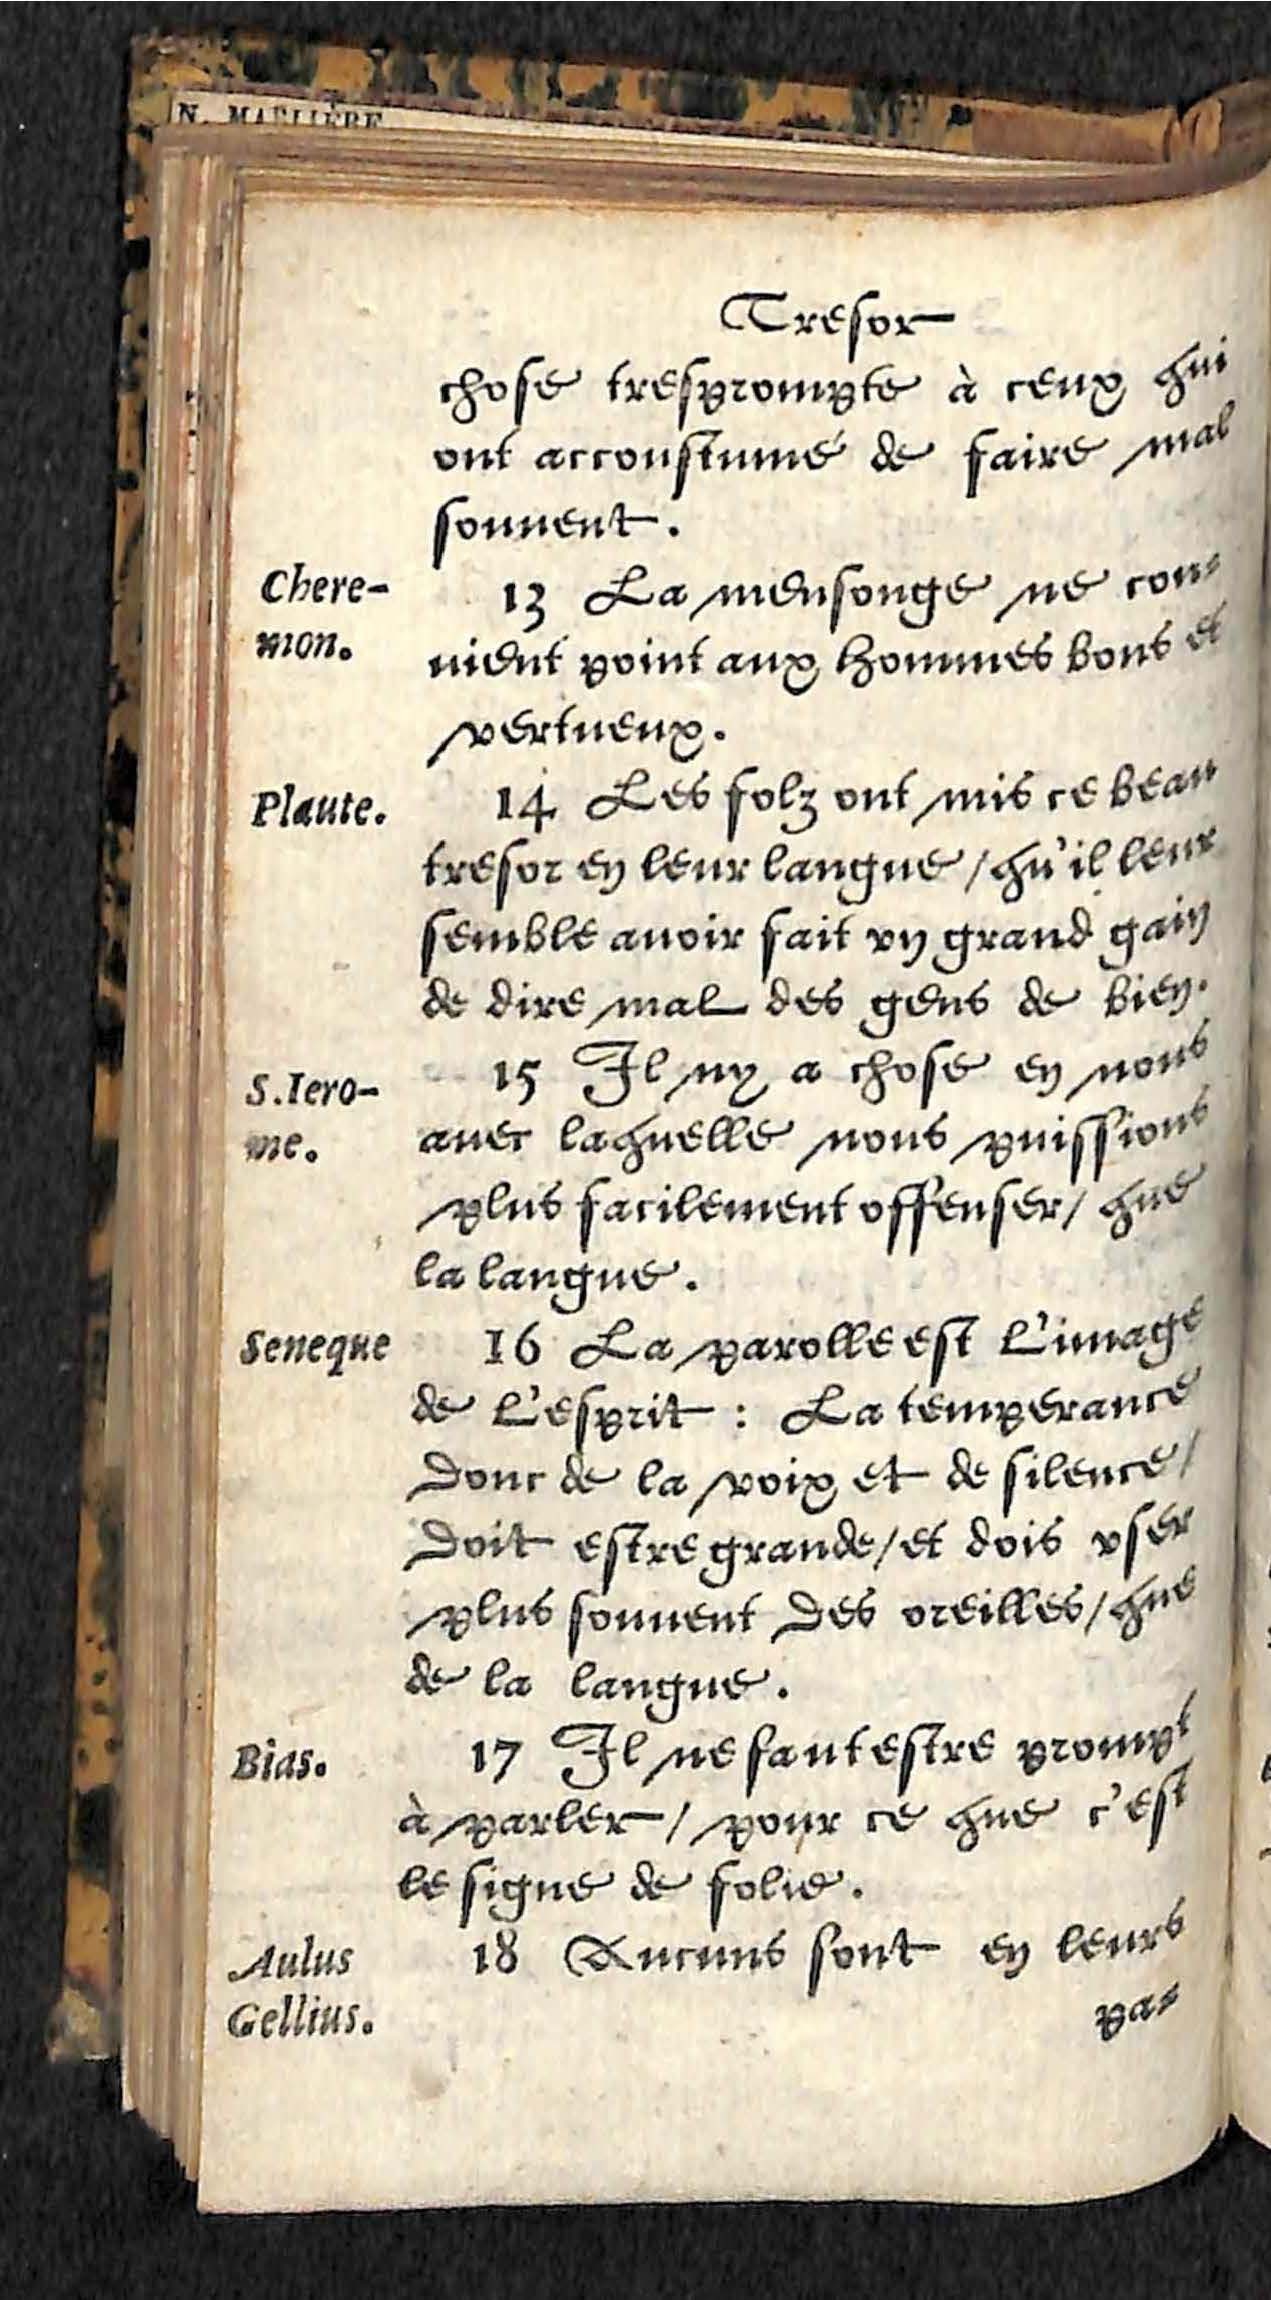 N. MAULIÈRE
Tresor
chose tresprompte à ceux qui
ont accoustumé de faire mal
souuent.
Chere-
mon.
13 La mensonge ne con-
uient point aux hommes bons et
vertueux.
Plaute.
14 Les folz ont mis ce beau
tresor en leur langue / qu'il leur
semble auoir fait vn grand gain
de dire mal des gens de bien.
S. Iero-
me.
15 Il ny a chose en nous
auec laquelle nous puissions
plus facilement offenser / que
la langue.
Seneque
16 La parolle est l'image
de l'esprit : La temperance
donc de la voix et de silence /
doit estre grande / et dois vser
plus souuent des oreilles / que
de la langue.
Bias.
17 Il ne faut estre prompt
à parler / pour ce que c'est
le signe de folie.
Aulus
Gellius.
18 Aucuns sont en leurs
pa-